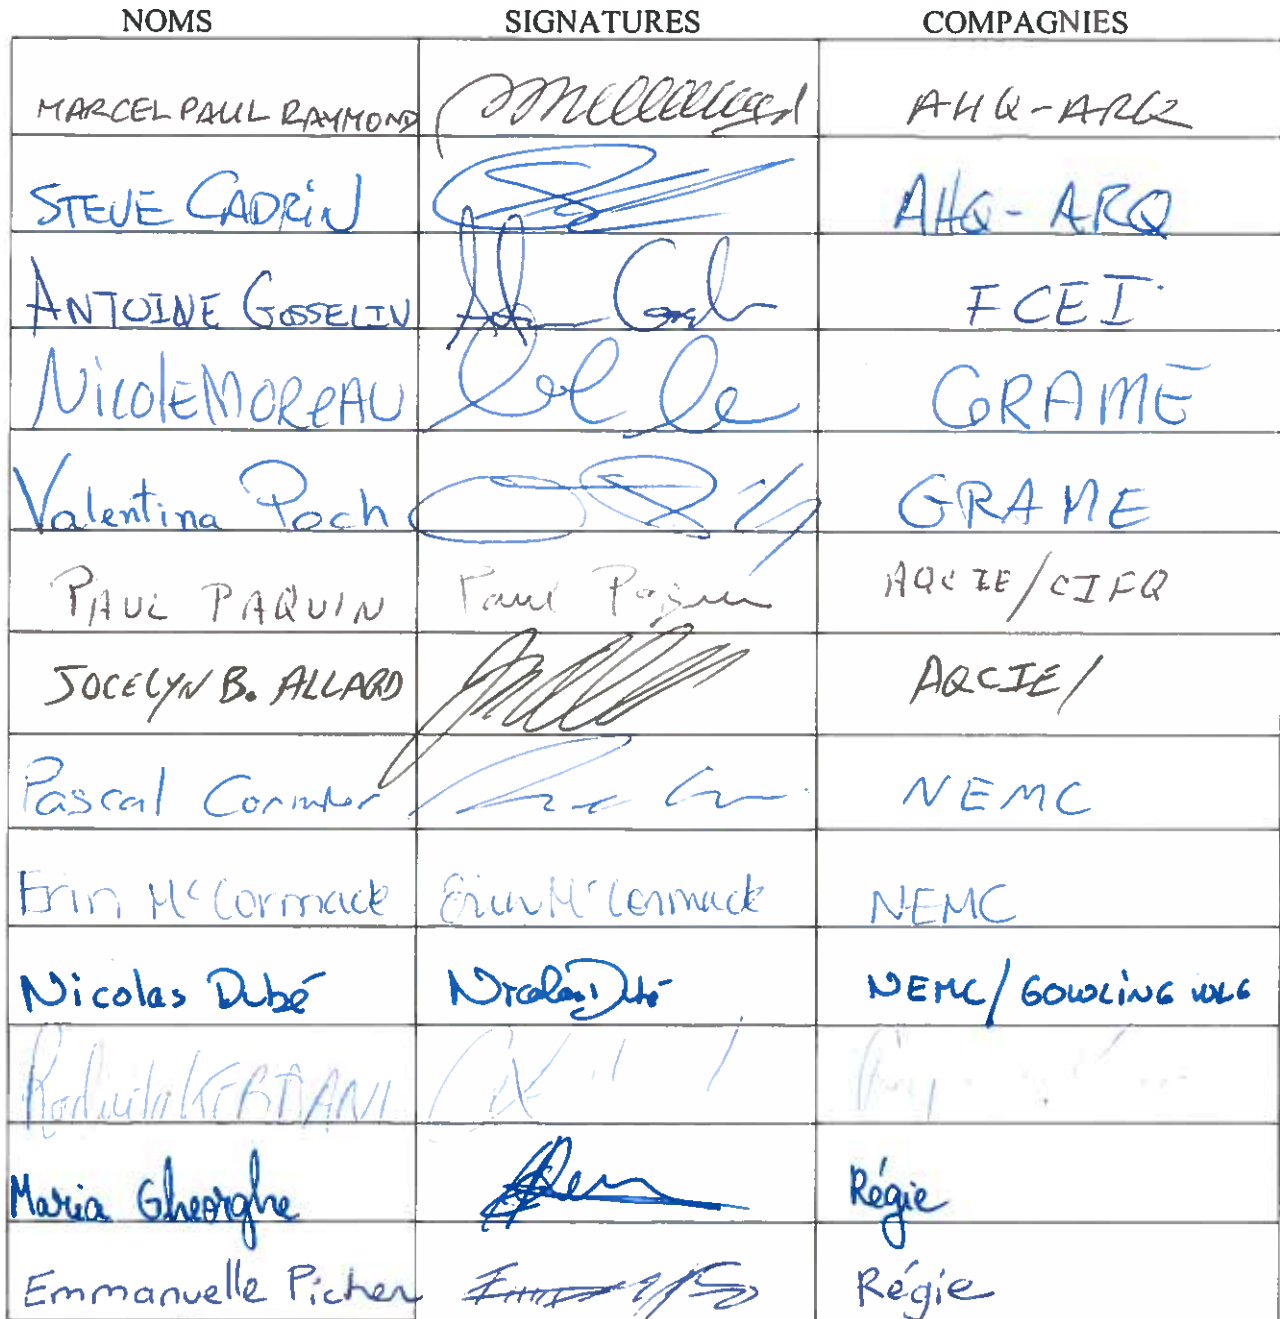 NOMS SIGNATURES COMPAGNIES
MARCEL PAUL RAYMOND AHQ-ARQ
STEVE CADRIN AHQ-ARQ
ANTOINE GOSSELIN FCEI
NICOLE MOREAU GRAME
Valentina Poch GRAME
PAUL PAQUIN Paul Paquin AQCIE/CIFQ
JOCELYN B. ALLARD AQCIE/
Pascal Cormier NEMC
Erin McCormack Erin McCormack NEMC
Nicolas Dubé Nicolas Dubé NEMC/GOWLING WLG
Maria Gheorghe Régie
Emmanuelle Picher Régie